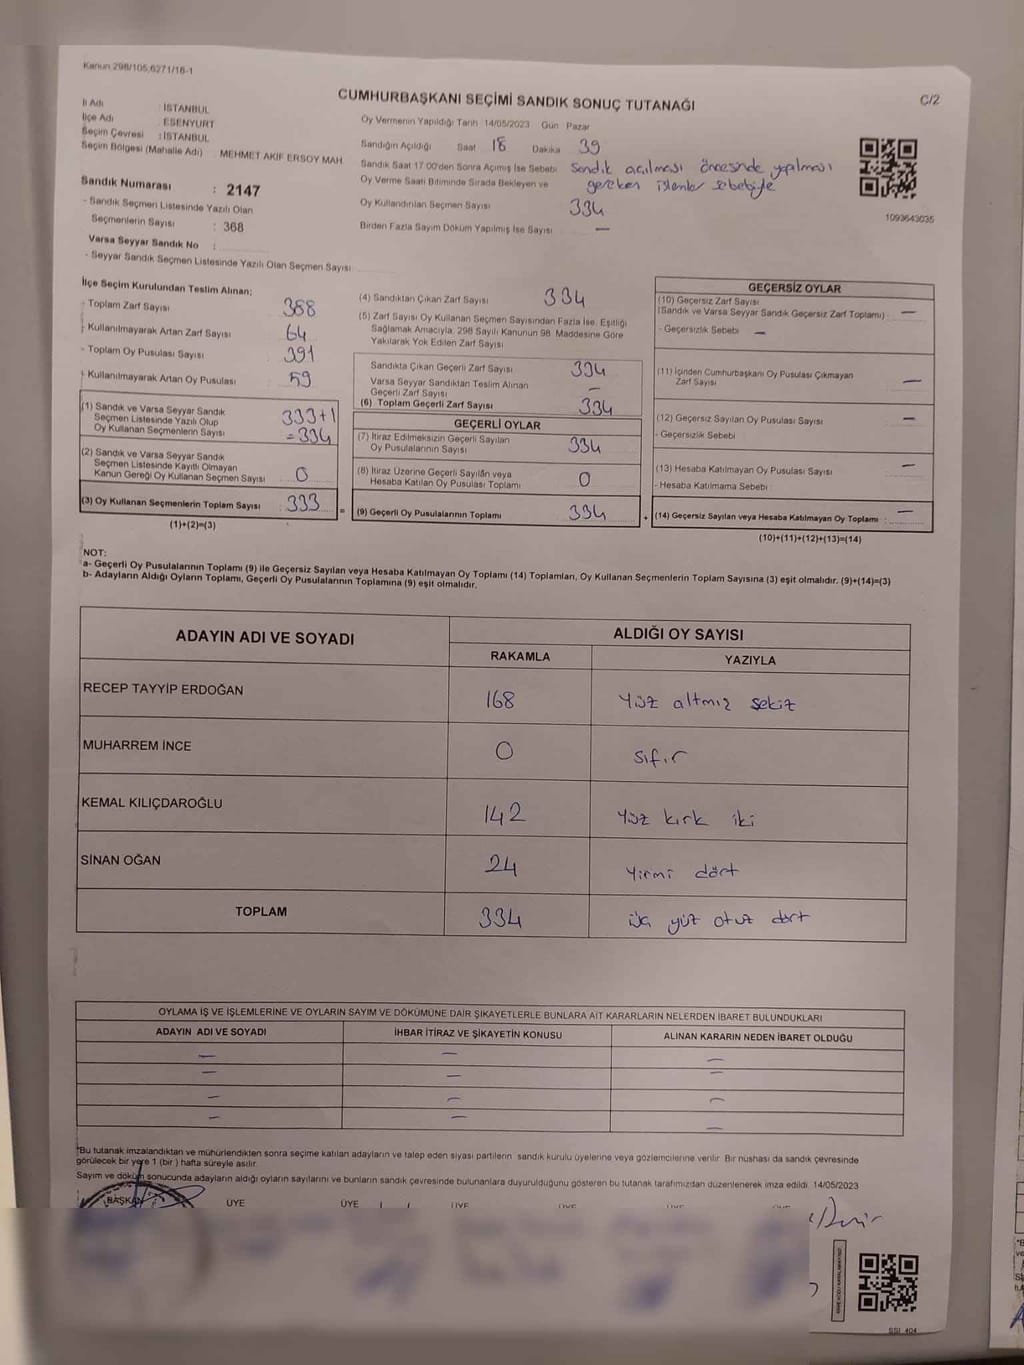 Kanun 298/105,6271/16-1
C/2
CUMHURBAŞKANI SEÇİMİ SANDIK SONUÇ TUTANAĞI
İl Adı : İSTANBUL
İlçe Adı : ESENYURT
Seçim Çevresi : İSTANBUL
Seçim Bölgesi (Mahalle Adı) : MEHMET AKİF ERSOY MAH
Sandık Numarası : 2147
- Sandık Seçmen Listesinde Yazılı Olan
Seçmenlerin Sayısı : 368
Varsa Seyyar Sandık No :
- Seyyar Sandık Seçmen Listesinde Yazılı Olan Seçmen Sayısı:
Oy Vermenin Yapıldığı Tarih 14/05/2023 Gün Pazar
Sandığın Açıldığı Saat 18 Dakika 39
Sandık Saat 17:00'den Sonra Açılmış İse Sebebi Sandık açılması öncesinde yapılması
Oy Verme Saati Bitiminde Sırada Bekleyen ve gereken işlemler sebebiyle
Oy Kullandırılan Seçmen Sayısı 334
Birden Fazla Sayım Döküm Yapılmış İse Sayısı —
1093643035
İlçe Seçim Kurulundan Teslim Alınan;
- Toplam Zarf Sayısı 388
- Kullanılmayarak Artan Zarf Sayısı 64
- Toplam Oy Pusulası Sayısı 391
- Kullanılmayarak Artan Oy Pusulası 59
(1) Sandık ve Varsa Seyyar Sandık
Seçmen Listesinde Yazılı Olup 333+1
Oy Kullanan Seçmenlerin Sayısı = 334
(2) Sandık ve Varsa Seyyar Sandık
Seçmen Listesinde Kayıtlı Olmayan
Kanun Gereği Oy Kullanan Seçmen Sayısı 0
(3) Oy Kullanan Seçmenlerin Toplam Sayısı : 333
(1)+(2)=(3)
(4) Sandıktan Çıkan Zarf Sayısı 334
(5) Zarf Sayısı Oy Kullanan Seçmen Sayısından Fazla İse, Eşitliği
Sağlamak Amacıyla, 298 Sayılı Kanunun 98. Maddesine Göre
Yakılarak Yok Edilen Zarf Sayısı
Sandıkta Çıkan Geçerli Zarf Sayısı 334
Varsa Seyyar Sandıktan Teslim Alınan
Geçerli Zarf Sayısı —
(6) Toplam Geçerli Zarf Sayısı 334
GEÇERLİ OYLAR
(7) İtiraz Edilmeksizin Geçerli Sayılan
Oy Pusulalarının Sayısı 334
(8) İtiraz Üzerine Geçerli Sayılan veya
Hesaba Katılan Oy Pusulası Toplamı 0
= (9) Geçerli Oy Pusulalarının Toplamı 334
GEÇERSİZ OYLAR
(10) Geçersiz Zarf Sayısı
(Sandık ve Varsa Seyyar Sandık Geçersiz Zarf Toplamı) —
- Geçersizlik Sebebi —
(11) İçinden Cumhurbaşkanı Oy Pusulası Çıkmayan
Zarf Sayısı —
(12) Geçersiz Sayılan Oy Pusulası Sayısı —
- Geçersizlik Sebebi
(13) Hesaba Katılmayan Oy Pusulası Sayısı —
- Hesaba Katılmama Sebebi
+ (14) Geçersiz Sayılan veya Hesaba Katılmayan Oy Toplamı : —
(10)+(11)+(12)+(13)=(14)
NOT:
a- Geçerli Oy Pusulalarının Toplamı (9) ile Geçersiz Sayılan veya Hesaba Katılmayan Oy Toplamı (14) Toplamları, Oy Kullanan Seçmenlerin Toplam Sayısına (3) eşit olmalıdır. (9)+(14)=(3)
b- Adayların Aldığı Oyların Toplamı, Geçerli Oy Pusulalarının Toplamına (9) eşit olmalıdır.
ADAYIN ADI VE SOYADI ALDIĞI OY SAYISI
RAKAMLA YAZIYLA
RECEP TAYYİP ERDOĞAN 168 Yüz altmış sekiz
MUHARREM İNCE 0 sıfır
KEMAL KILIÇDAROĞLU 142 Yüz kırk iki
SİNAN OĞAN 24 Yirmi dört
TOPLAM 334 üç yüz otuz dört
OYLAMA İŞ VE İŞLEMLERİNE VE OYLARIN SAYIM VE DÖKÜMÜNE DAİR ŞİKAYETLERLE BUNLARA AİT KARARLARIN NELERDEN İBARET BULUNDUKLARI
ADAYIN ADI VE SOYADI İHBAR İTİRAZ VE ŞİKAYETİN KONUSU ALINAN KARARIN NEDEN İBARET OLDUĞU
— — —
— — —
— — —
— — —
*Bu tutanak imzalandıktan ve mühürlendikten sonra seçime katılan adayların ve talep eden siyasi partilerin sandık kurulu üyelerine veya gözlemcilerine verilir. Bir nüshası da sandık çevresinde
görülecek bir yere 1 (bir ) hafta süreyle asılır.
Sayım ve döküm sonucunda adayların aldığı oyların sayılarını ve bunların sandık çevresinde bulunanlara duyurulduğunu gösteren bu tutanak tarafımızdan düzenlenerek imza edildi. 14/05/2023
BAŞKAN ÜYE ÜYE ÜYE ÜYE
SSI_404